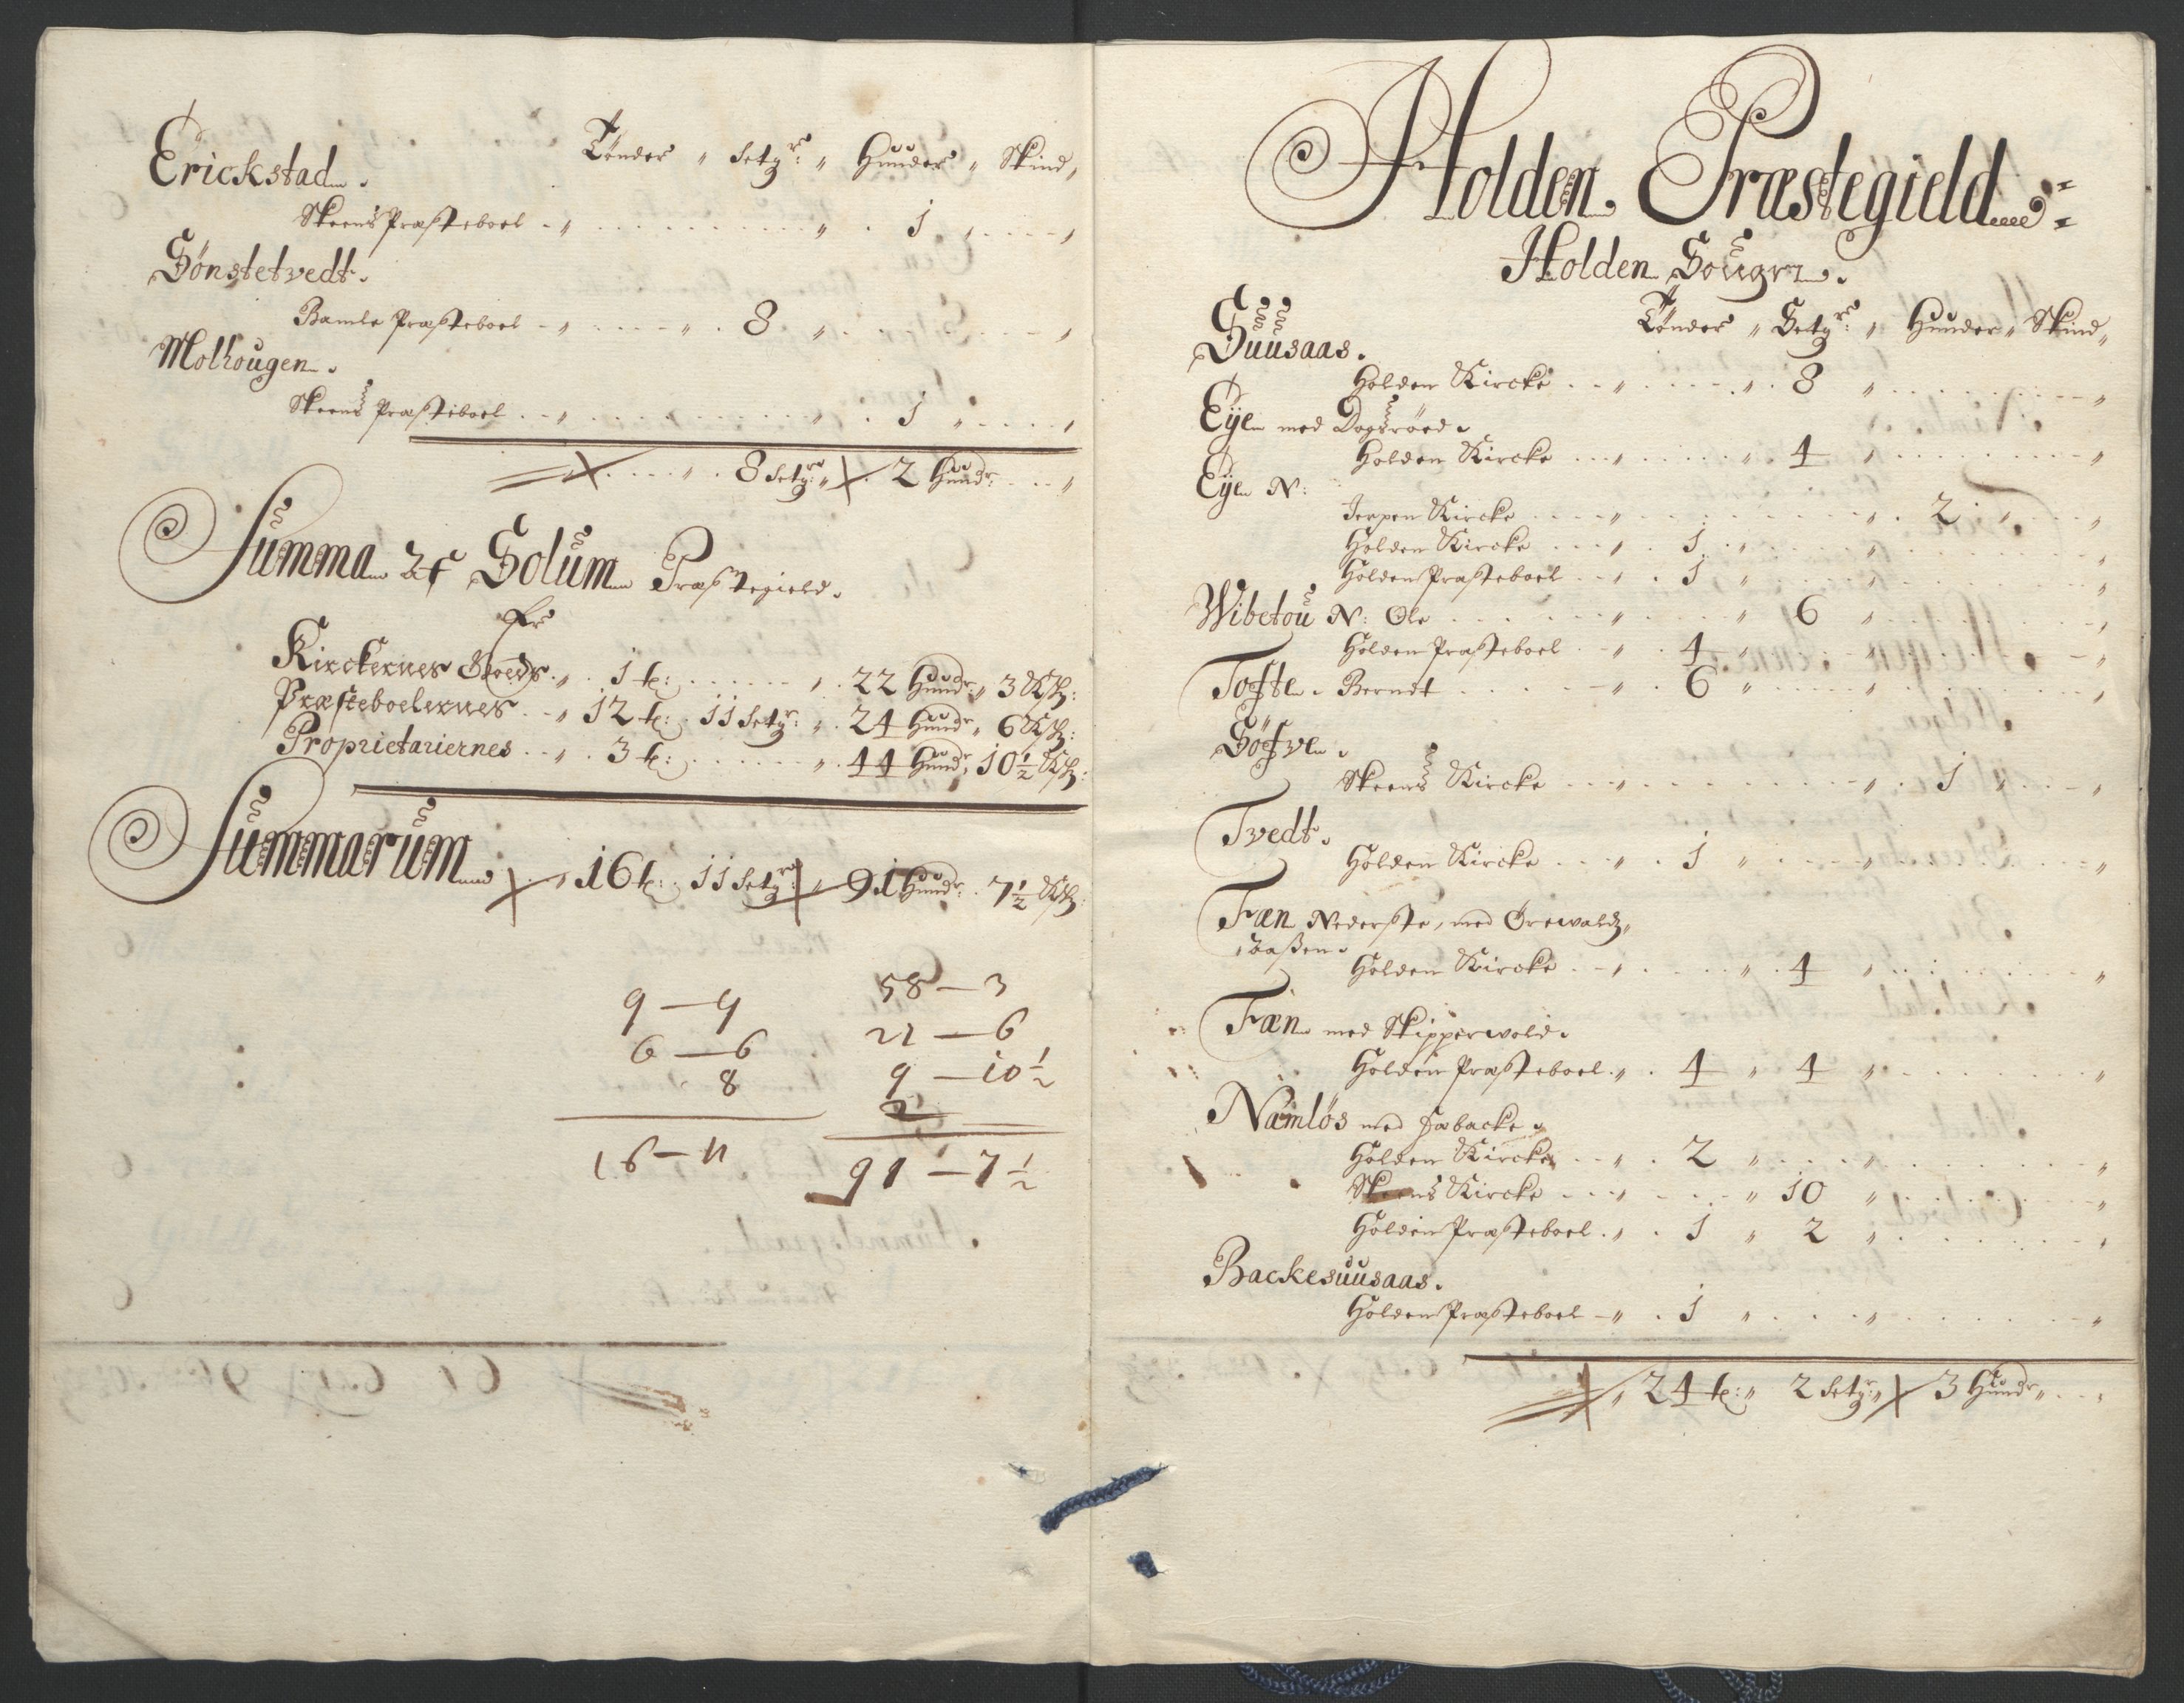 Tönder " Setgr: " Huuder " Skind "
Erickstad.
Skeens Præsteboel . " . . . . . " . 1 " . . . "
Sönstetvedt.
Bamle Præsteboel . " . . . " . 8 " . . . "
Molhougen.
Skeens Præsteboel . . " . . . . . " . 1 " . . . "
8 Setgr: " 2 Huudr: . . "
Summa Af Solum Præstegield.
Er
Kirckernes Goeds . " . 1 t: . . . . " . 22 Huudr: " 3 Sk:
Præsteboelernes . . " 12 t: . 11 Setgr: " . 24 Huudr " 6 Sk:
Proprietariernes . . " . 3 t: . . . . " . 44 Huudr: 10½ Sk:
Summarum " 16 t: . 11 Setgr: " 91 Huudr: . 7½ Sk:
9 — 9 58 — 3
6 — 6 21 — 6
8 9 — 10½
2
16 — 11 91 — 7½
Holden Præstegield
Holden Sougn.
Tönder " Setgr: " Huuder " Skind "
Suusaas.
Holden Kircke . . " . . . " . 8 " . . . "
Eye med Dogsröed.
Holden Kircke . . . " . . . " . 4 " . . . "
Eye N:
Jerpen Kircke . . . " . . . . . " . 2 . " . . . "
Holden Kircke . . . " . 1 . " . . . " . . . "
Holden Præsteboel . . " . 1 " . . . " . . . "
Wibetou N: Ole . . . . " . . . " 6 " . . . "
Holden Præsteboel . " . 4 " . . . " . . . "
Tofte. Berndt . . . . " . 6 " . . . " . . . "
Söfve.
Skeens Kircke . . . " . . . . . " . 1 " . . "
Tvedt.
Holden Kircke . . . " . 1 " . . . " . . . "
Fæn Nederste, med Örewaldz,
aasen.
Holden Kircke . . " . . . " . 4 " . . . "
Fæn med Skipperwold.
Holden Præsteboel . " . 4 " 4 " . . . "
Næmlös med Habacke.
Holden Kircke . . " . 2 " . . . " . . . "
Skeens Kircke . . . " . . . " 10 " . . . "
Holden Præsteboel . " . 1 " 2 " . . . "
Backesuusaas.
Holden Præsteboel . " . 1 " . . . " . . . "
" 24 t: " 2 Setgr: " 3 Huudr " . . .